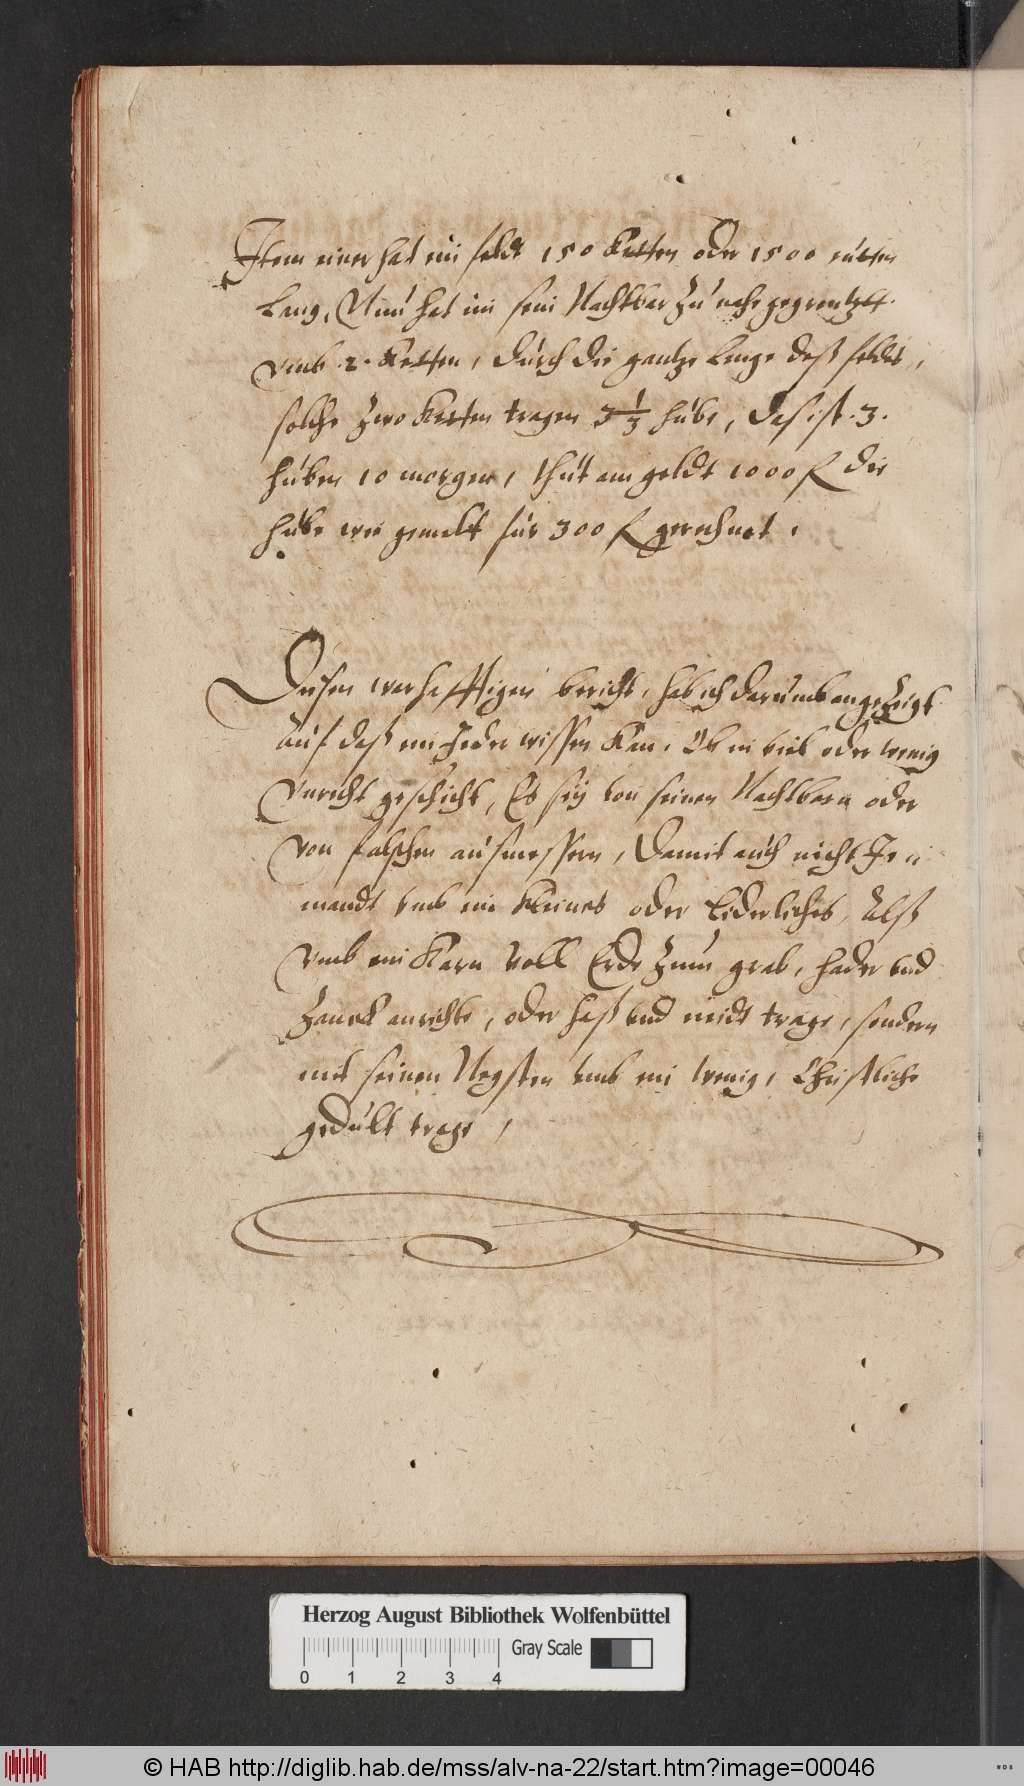 Item einer hat ein feldt 150 Ketten oder 1500 rutten
lang, Nun hat im sein Nachtbar zu nahe gegrentzett
vmb 2. Ketten, durch die gantze lenge deß feldes,
solche zwo Ketten tragen 3 1/3 hube, das ist .3.
huben 10 morgen, thut am geldt 1000 f die
hube wie gemelt fur 300 f gerechnet,
Diesen warhafftigen bericht, hab ich darumb angezeigt
Auf daß ein Jeder wissen kan, Ob im viel oder wenig
Vnrecht geschicht, Es sey von seinen Nachtbarn oder
von falschen ausmessern, Damit auch nicht Je-
mandt vmb ein kleines oder liderliches, Alß
vmb ein karn voll Erde zum grab, hader vnd
Zanck anrichte, oder haß vnd neidt trage, sondern
mit seinen Negsten vmb ein wenig, Christliche
gedult trage,
Herzog August Bibliothek Wolfenbüttel
Gray Scale
0 1 2 3 4
© HAB http://diglib.hab.de/mss/alv-na-22/start.htm?image=00046